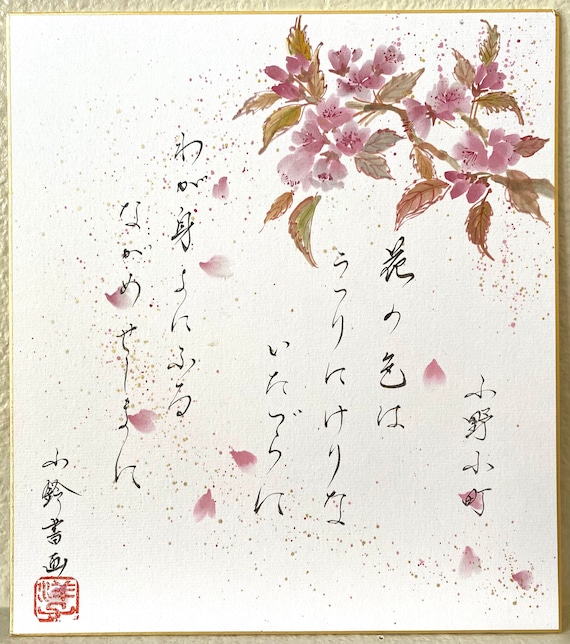 小野小町
花の色は
うつりにけりな
いたづらに
わが身よにふる
ながめせしまに
小鈴書画